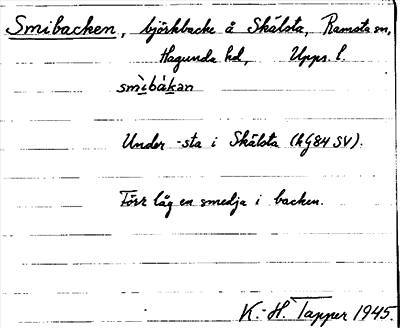 Smibacken, björkbacke å Skälsta, Ramsta sn,
Hagunda hd, Upps. l.
smìbàkan
Under -sta i Skälsta (hG84 SV).
Förr låg en smedja i backen.
K.-H. Tapper 1945.